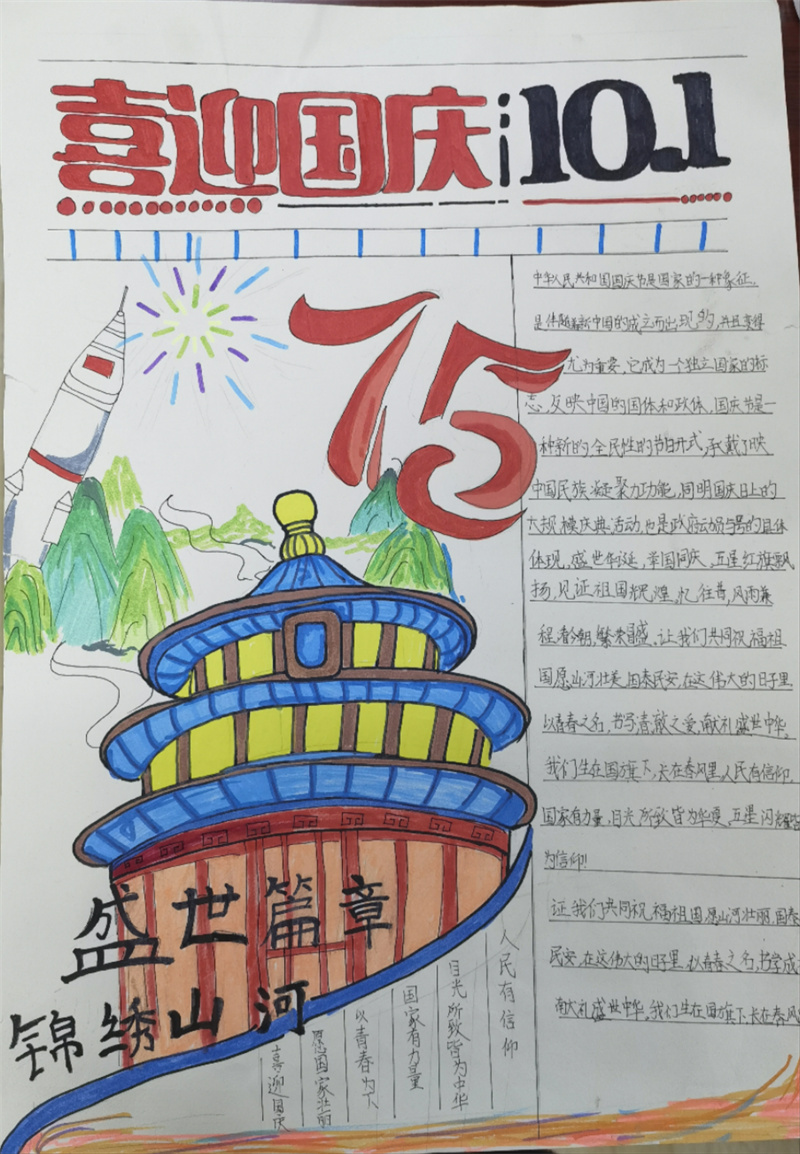 喜迎国庆 10.1
75
中华人民共和国国庆节是国家的一种象征,
是伴随着新中国的成立而出现的,并且变得
尤为重要,它成为一个独立国家的标
志,反映中国的国体和政体,国庆节是一
种新的全民性的节日形式,承载了映
中国民族凝聚力功能,同明国庆日上的
大规模庆典活动,也是政府动员与号的具体
体现,盛世华诞,举国同庆,五星红旗飘
扬,见证祖国辉煌,忆往昔,风雨兼
程,看今朝,繁荣昌盛,让我们共同祝福祖
国原山河壮美,国泰民安,在这伟大的日子里
以青春之名,书写清澈之爱,献礼盛世中华。
我们生在国旗下,长在春风里,人民有信仰,
国家有力量,目光所致皆为华夏,五星闪耀皆
为信仰!
证我们共同祝福祖国,原山河壮丽,国泰
民安,在这伟大的日子里,以春春之名,书学成
南大礼盛世中华。我们生在国旗下,长在春风
盛世篇章
锦绣山河
人民有信仰
目光所致皆为中华
国家有力量
以青春为下
愿国家壮丽
喜迎国庆